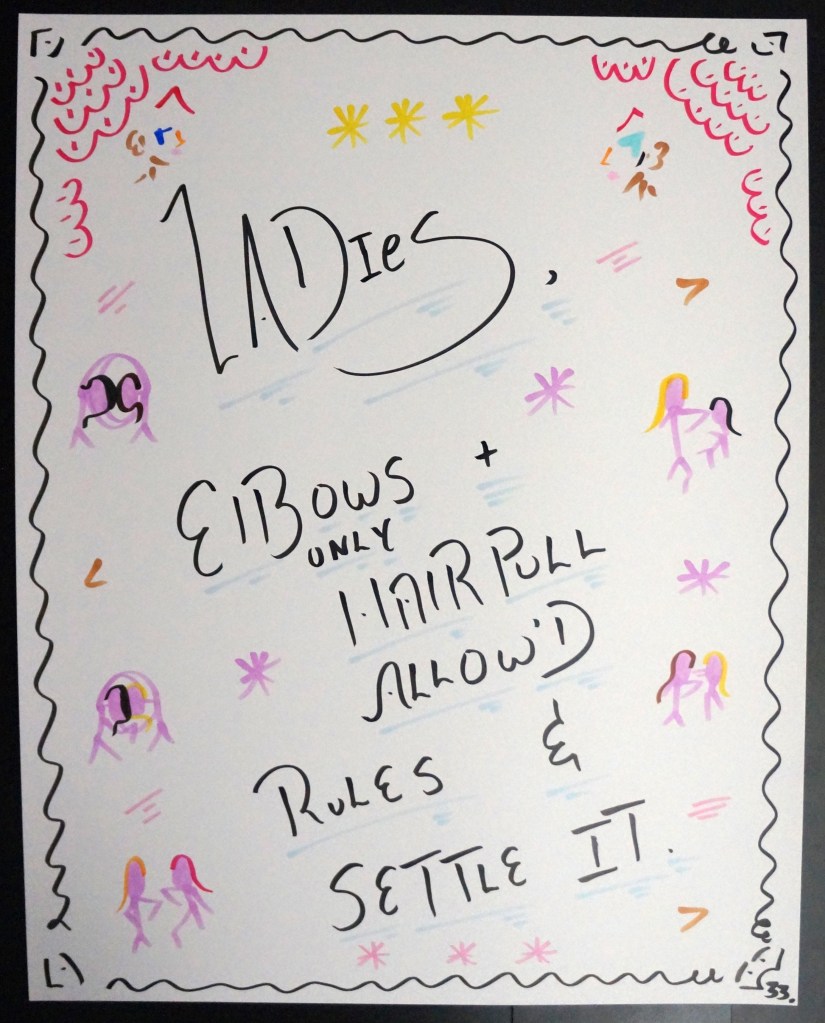 LADIes,
ElBOWS +
ONLY
HAIR PULL
ALLOW'D
RULES &
SETTLE IT.
33.